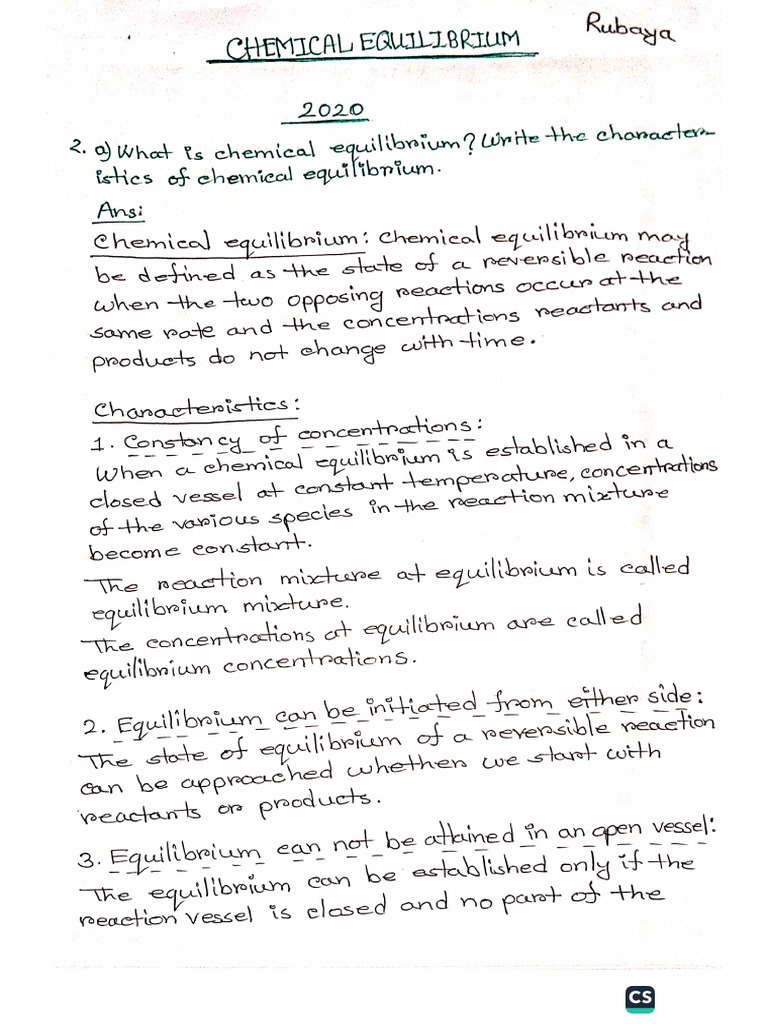 Rubaya
CHEMICAL EQUILIBRIUM
2020
2. a) What is chemical equilibrium? Write the character-
istics of chemical equilibrium.
Ans:
Chemical equilibrium: Chemical equilibrium may
be defined as the state of a reversible reaction
when the two opposing reactions occur at the
same rate and the concentrations reactants and
products do not change with time.
Characteristics:
1. Constancy of concentrations:
When a chemical equilibrium is established in a
closed vessel at constant temperature, concentrations
of the various species in the reaction mixture
become constant.
The reaction mixture at equilibrium is called
equilibrium mixture.
The concentrations at equilibrium are called
equilibrium concentrations.
2. Equilibrium can be initiated from either side:
The state of equilibrium of a reversible reaction
can be approached whether we start with
reactants or products.
3. Equilibrium can not be attained in an open vessel:
The equilibrium can be established only if the
reaction vessel is closed and no part of the
CS